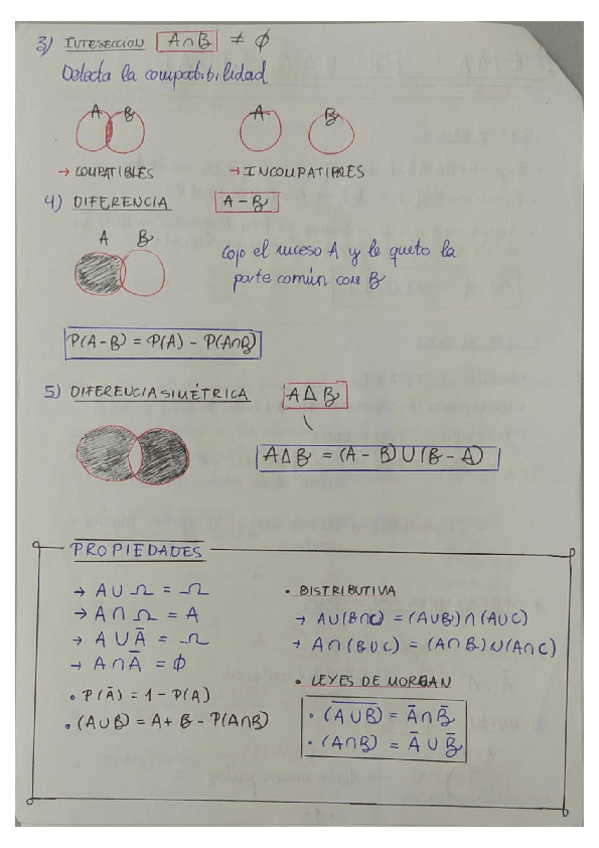 3) INTESECCION A∩B ≠ ∅
Detecta la compatibilidad
A B A B
→ COMPATIBLES → INCOMPATIBLES
4) DIFERENCIA A-B
A B
Cojo el suceso A y le quito la
parte común con B
P(A-B) = P(A) - P(A∩B)
5) DIFERENCIA SIMÉTRICA A∆B
A∆B = (A-B)∪(B-A)
PROPIEDADES
→ A∪Ω = Ω
→ A∩Ω = A
→ A∪Ā = Ω
→ A∩Ā = ∅
• P(Ā) = 1 - P(A)
• (A∪B) = A + B - P(A∩B)
• DISTRIBUTIVA
→ A∪(B∩C) = (A∪B)∩(A∪C)
→ A∩(B∪C) = (A∩B)∪(A∩C)
• LEYES DE MORGAN
• (A̅∪̅B̅) = Ā∩B̅
• (A̅∩̅B̅) = Ā∪B̅